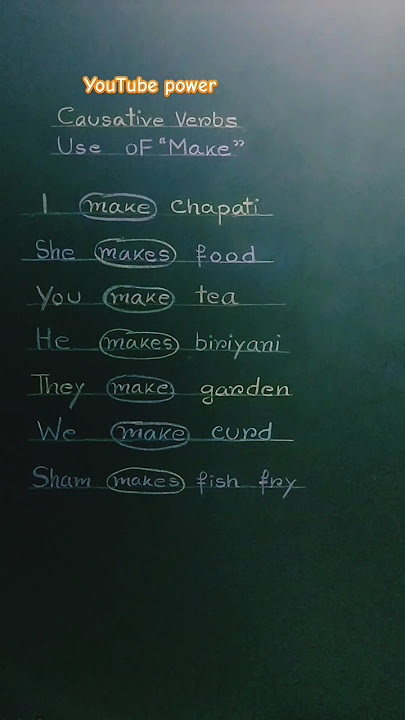 YouTube power
Causative Verbs
Use of "Make"
I make chapati
She makes food
You make tea
He makes biriyani
They make garden
We make curd
Sham makes fish fry